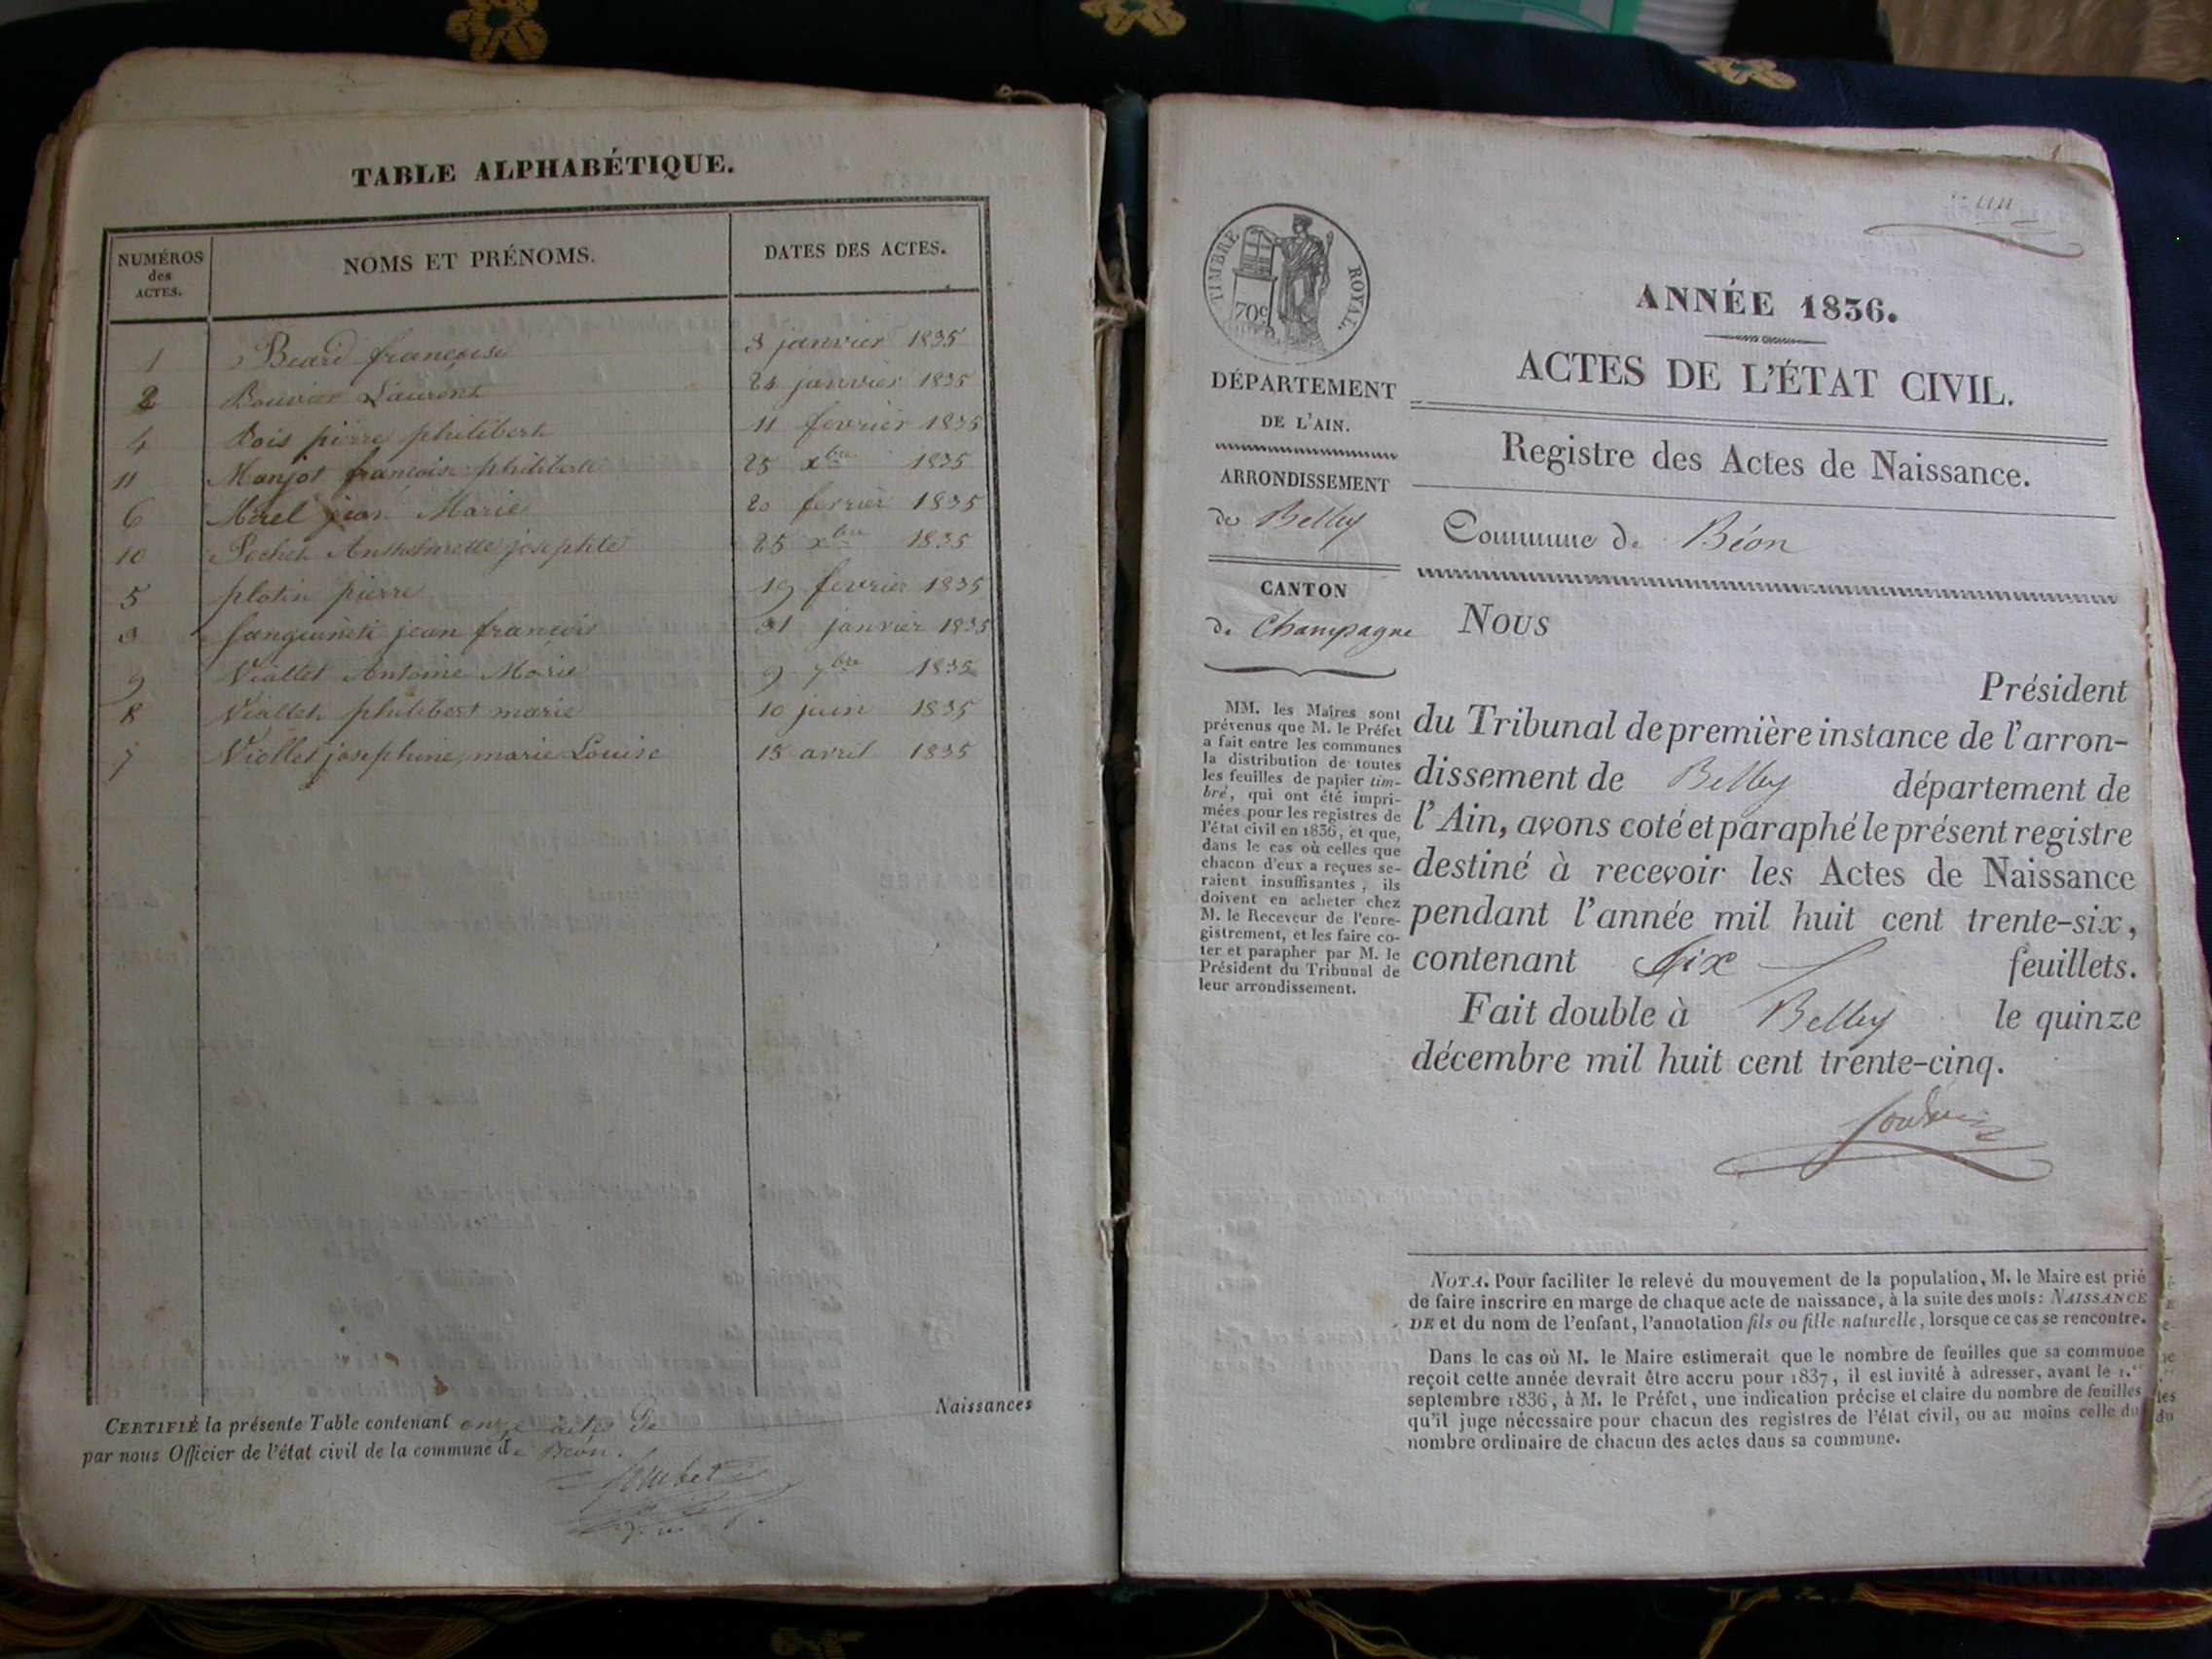 TABLE ALPHABÉTIQUE.
NUMÉROS des ACTES. NOMS ET PRÉNOMS. DATES DES ACTES.
1 Beard françoise 3 janvier 1835
2 Bouvier Laurent 24 janvier 1835
4 Dois pierre philibert 11 fevrier 1835
11 Manjot françoise philiberte 25 xbre 1835
6 Morel jean Marie 20 fevrier 1835
10 Pochet Anthelmette josephte 25 xbre 1835
5 platin pierre 19 fevrier 1835
3 Sanguineti jean francois 31 janvier 1835
9 Viallet Antoine Marie 9 7bre 1835
8 Viallet philibert marie 10 juin 1835
7 Viollet josephine marie Louise 15 avril 1835
CERTIFIÉ la présente Table contenant onze actes de Naissances
par nous Officier de l'état civil de la commune de Béon.
un
TIMBRE ROYAL.
70c
ANNÉE 1836.
ACTES DE L'ÉTAT CIVIL.
Registre des Actes de Naissance.
Commune de Béon
DÉPARTEMENT
DE L'AIN.
ARRONDISSEMENT
de Belley
CANTON
de Champagne
MM. les Maires sont
prévenus que M. le Préfet
a fait entre les communes
la distribution de toutes
les feuilles de papier tim-
bré, qui ont été impri-
mées pour les registres de
l'état civil en 1836, et que,
dans le cas où celles que
chacun d'eux a reçues se-
raient insuffisantes, ils
doivent en acheter chez
M. le Receveur de l'enre-
gistrement, et les faire co-
ter et parapher par M. le
Président du Tribunal de
leur arrondissement.
Nous
Président
du Tribunal de première instance de l'arron-
dissement de Belley département de
l'Ain, avons coté et paraphé le présent registre
destiné à recevoir les Actes de Naissance
pendant l'année mil huit cent trente-six,
contenant Six feuillets.
Fait double à Belley le quinze
décembre mil huit cent trente-cinq.
NOTA. Pour faciliter le relevé du mouvement de la population, M. le Maire est prié
de faire inscrire en marge de chaque acte de naissance, à la suite des mots: NAISSANCE
DE et du nom de l'enfant, l'annotation fils ou fille naturelle, lorsque ce cas se rencontre.
Dans le cas où M. le Maire estimerait que le nombre de feuilles que sa commune
reçoit cette année devrait être accru pour 1837, il est invité à adresser, avant le 1.er
septembre 1836, à M. le Préfet, une indication précise et claire du nombre de feuilles
qu'il juge nécessaire pour chacun des registres de l'état civil, ou au moins celle du
nombre ordinaire de chacun des actes dans sa commune.